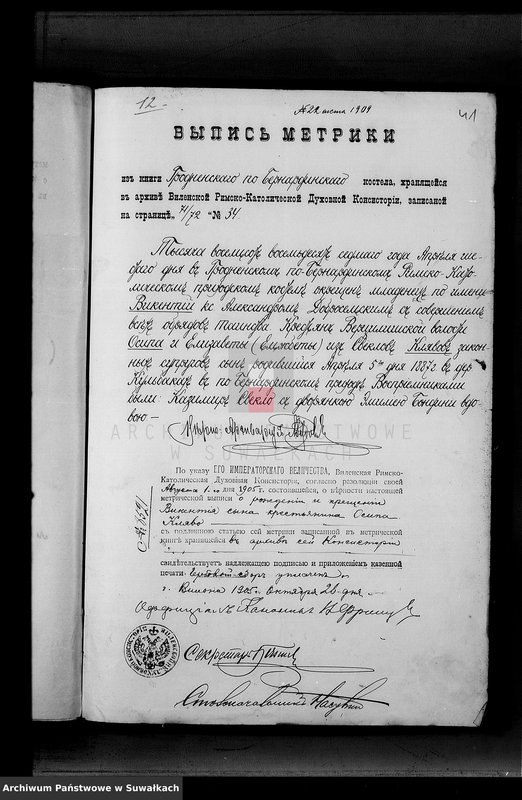 12
41
1909
ВЫПИСЬ МЕТРИКИ
изъ книги Гродненскаго по Бернардинскаго костела, хранящейся
въ архивѣ Виленской Римско-Католической Духовной Консисторіи, записаной
на страницѣ, 71/72 № 34
Тысяча восемьсотъ восемьдесятъ седьмаго года Апрѣля
дня въ Гродненскомъ по-Бернардинскомъ Римско-Като-
лическомъ приходскомъ костелѣ окрещенъ младенецъ по имени
Викентій кс. Александромъ съ совершеніемъ
всѣхъ обрядовъ таинства. Крестьянъ Верцилишской волости
Осипа и Елизаветы (Елжбеты) изъ Свекловъ Клявовъ закон-
ныхъ супруговъ сынъ, родившійся Апрѣля 5го дня 1887 г. въ дер.
въ по Бернардинскомъ приходѣ. Воспріемниками
были: Казимиръ Свекло съ дворянкою вдо-
вою —
ARCHIWUM PAŃSTWOWE
W SUWAŁKACH
По указу ЕГО ИМПЕРАТОРСКАГО ВЕЛИЧЕСТВА, Виленская Римско-
Католическая Духовная Консисторія, согласно резолюціи своей
Августа 1го дня 1905 г. состоявшейся, о вѣрности настоящей
метрической выписи о рожденіи и крещеніи
Викентія сына крестьянина Осипа
Клява
съ подлинною статьею сей метрики записанной въ метрической
книгѣ хранящейся въ архивѣ сей Консисторіи
свидѣтельствуетъ надлежащею подписью и приложеніемъ казенной
печати. Гербовый сборъ уплаченъ
г. Вильна 1905 г. Октября 26 дня
Каноникъ
Секретарь
Столоначальникъ
Archiwum Państwowe w Suwałkach